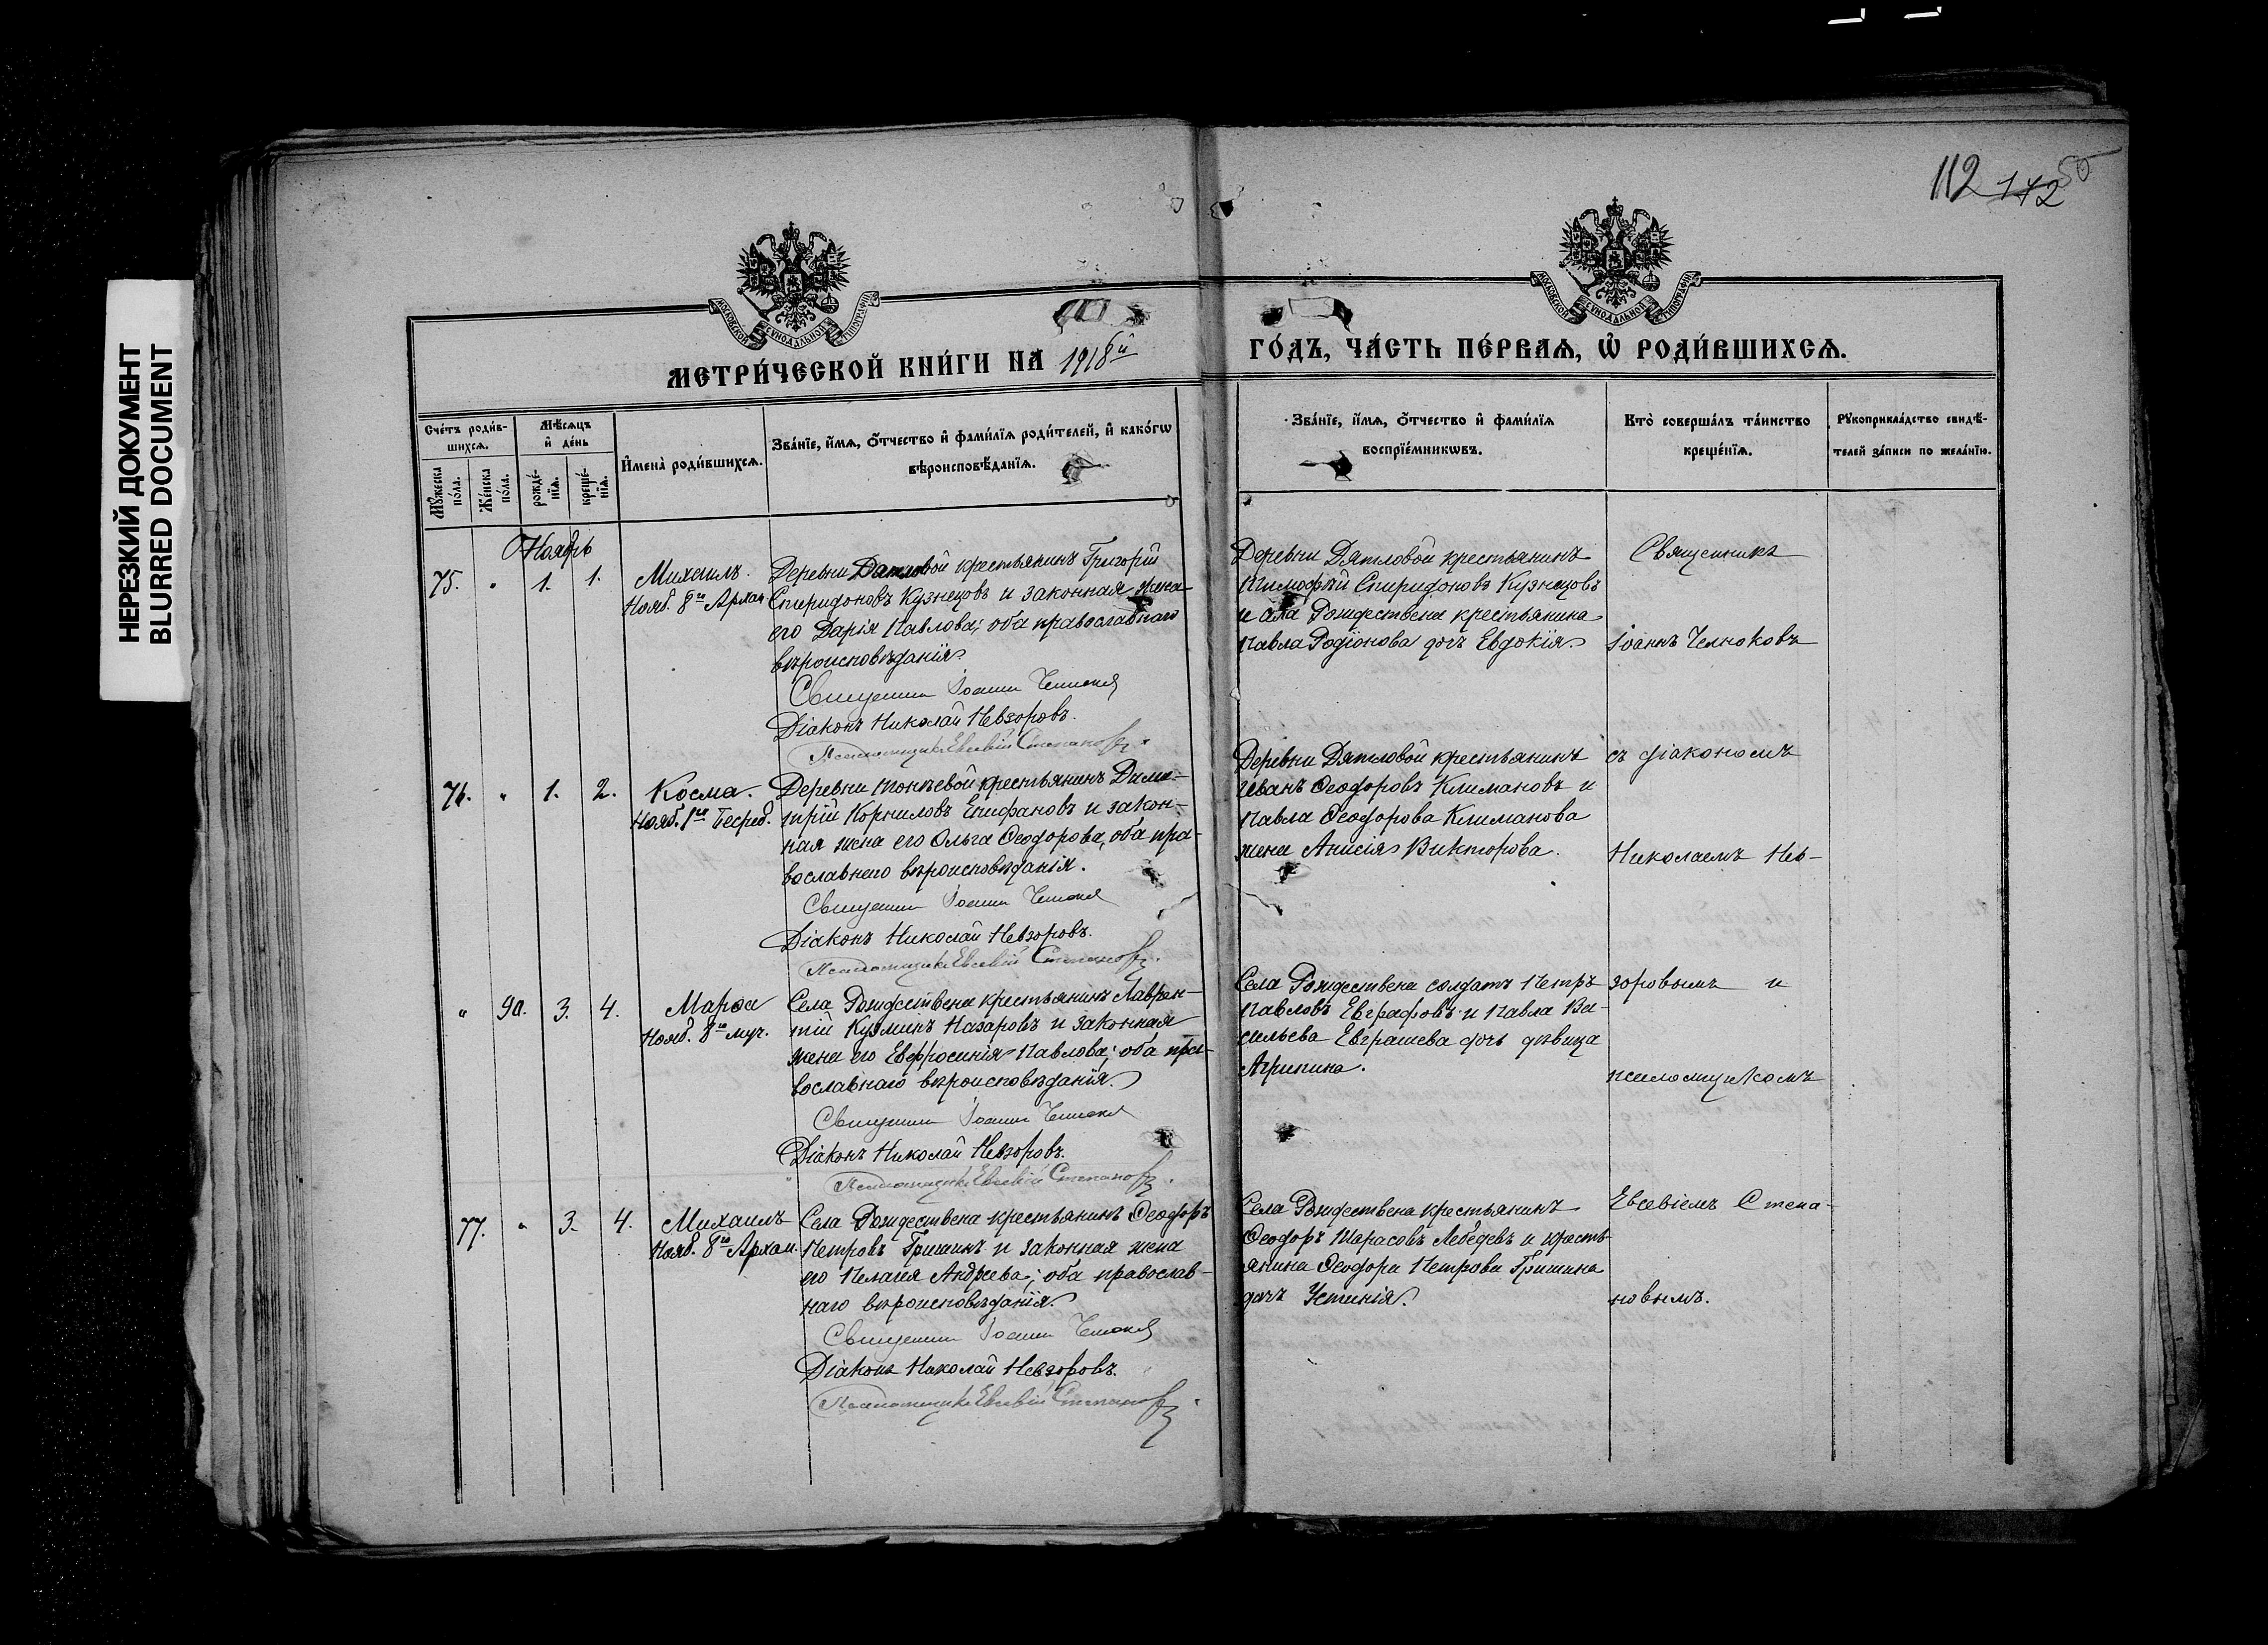 НЕРЕЗКИЙ ДОКУМЕНТ
BLURRED DOCUMENT
112 172 50
МОСКОВСКОЙ СѴНОДАЛЬНОЙ ТИПОГРАФІИ
МОСКОВСКОЙ СѴНОДАЛЬНОЙ ТИПОГРАФІИ
МЕТРИ́ЧЕСКОЙ КНИ́ГИ НА 1918й
ГО́ДЪ, ЧА́СТЬ ПЕ́РВАѦ, Ѡ҆ РОДИ́ВШИХСѦ.
Сче́тъ роди́в-
шихсѧ.
Мѣ́сѧцъ
и҆ де́нь
Мꙋ́жеска
по́ла.
Же́нска
по́ла.
рожде́-
нїѧ.
креще́-
нїѧ.
И҆мена̀ роди́вшихсѧ.
Зва́нїе, и҆́мѧ, ѻ҆́тчество и҆ фами́лїѧ роди́телей, и҆ како́гѡ
вѣроисповѣ́данїѧ.
Зва́нїе, и҆́мѧ, ѻ҆́тчество и҆ фами́лїѧ
воспрїе́мникѡвъ.
Кто̀ соверша́лъ та́инство
креще́нїѧ.
Рꙋкоприкла́дство свидѣ́-
телей за́писи по жела́нїю.
Ноябрь
75. " 1. 1. Михаилъ.
Нояб. 8го Архан.
Деревни Дятловой крестьянинъ Григорій
Спиридоновъ Кузнецовъ и законная жена
его Дарія Павлова; оба православнаго
вѣроисповѣданія.
Священникъ Іоаннъ Челноковъ
Діаконъ Николай Невзоровъ.
Псаломщикъ Евсевій Степановъ.
Деревни Дятловой крестьянинъ
Тимофѣй Спиридоновъ Кузнецовъ
и села Рождествена крестьянина
Павла Родіонова дочь Евдокія.
Священникъ
Іоаннъ Челноковъ
76. " 1. 2. Косма.
Нояб. 1го Безсреб.
Деревни крестьянинъ Дими-
трій Корниловъ Епифановъ и закон-
ная жена его Ольга Ѳеодорова, оба пра-
вославнаго вѣроисповѣданія.
Священникъ Іоаннъ Челноковъ
Діаконъ Николай Невзоровъ.
Псаломщикъ Евсевій Степановъ.
Деревни Дятловой крестьянинъ
Иванъ Ѳеодоровъ Климановъ и
Павла Ѳеодорова Климанова
жена Анисія Викторова.
съ діакономъ
Николаемъ Нев-
" 90. 3. 4. Марѳа
Нояб. 8го муч.
Села Рождествена крестьянинъ Лаврен-
тій Кузминъ Назаровъ и законная
жена его Евфросинія Павлова; оба пра-
вославнаго вѣроисповѣданія.
Священникъ Іоаннъ Челноковъ
Діаконъ Николай Невзоровъ.
Псаломщикъ Евсевій Степановъ.
Села Рождествена солдатъ Петръ
Павловъ Евграфовъ и Павла Ва-
сильева Евграшева дочь дѣвица
Агрипина.
зоровымъ и
псаломщикомъ
77. " 3. 4. Михаилъ
Нояб. 8го Архан.
Села Рождествена крестьянинъ Ѳеодоръ
Петровъ Гришинъ и законная жена
его Пелагея Андреева; оба православ-
наго вѣроисповѣданія.
Священникъ Іоаннъ Челноковъ
Діаконъ Николай Невзоровъ.
Псаломщикъ Евсевій Степановъ.
Села Рождествена крестьянинъ
Ѳеодоръ Тарасовъ Лебедевъ и кресть-
янина Ѳеодора Петрова Гришина
дочь Устинія.
Евсевіемъ Степа-
новымъ.